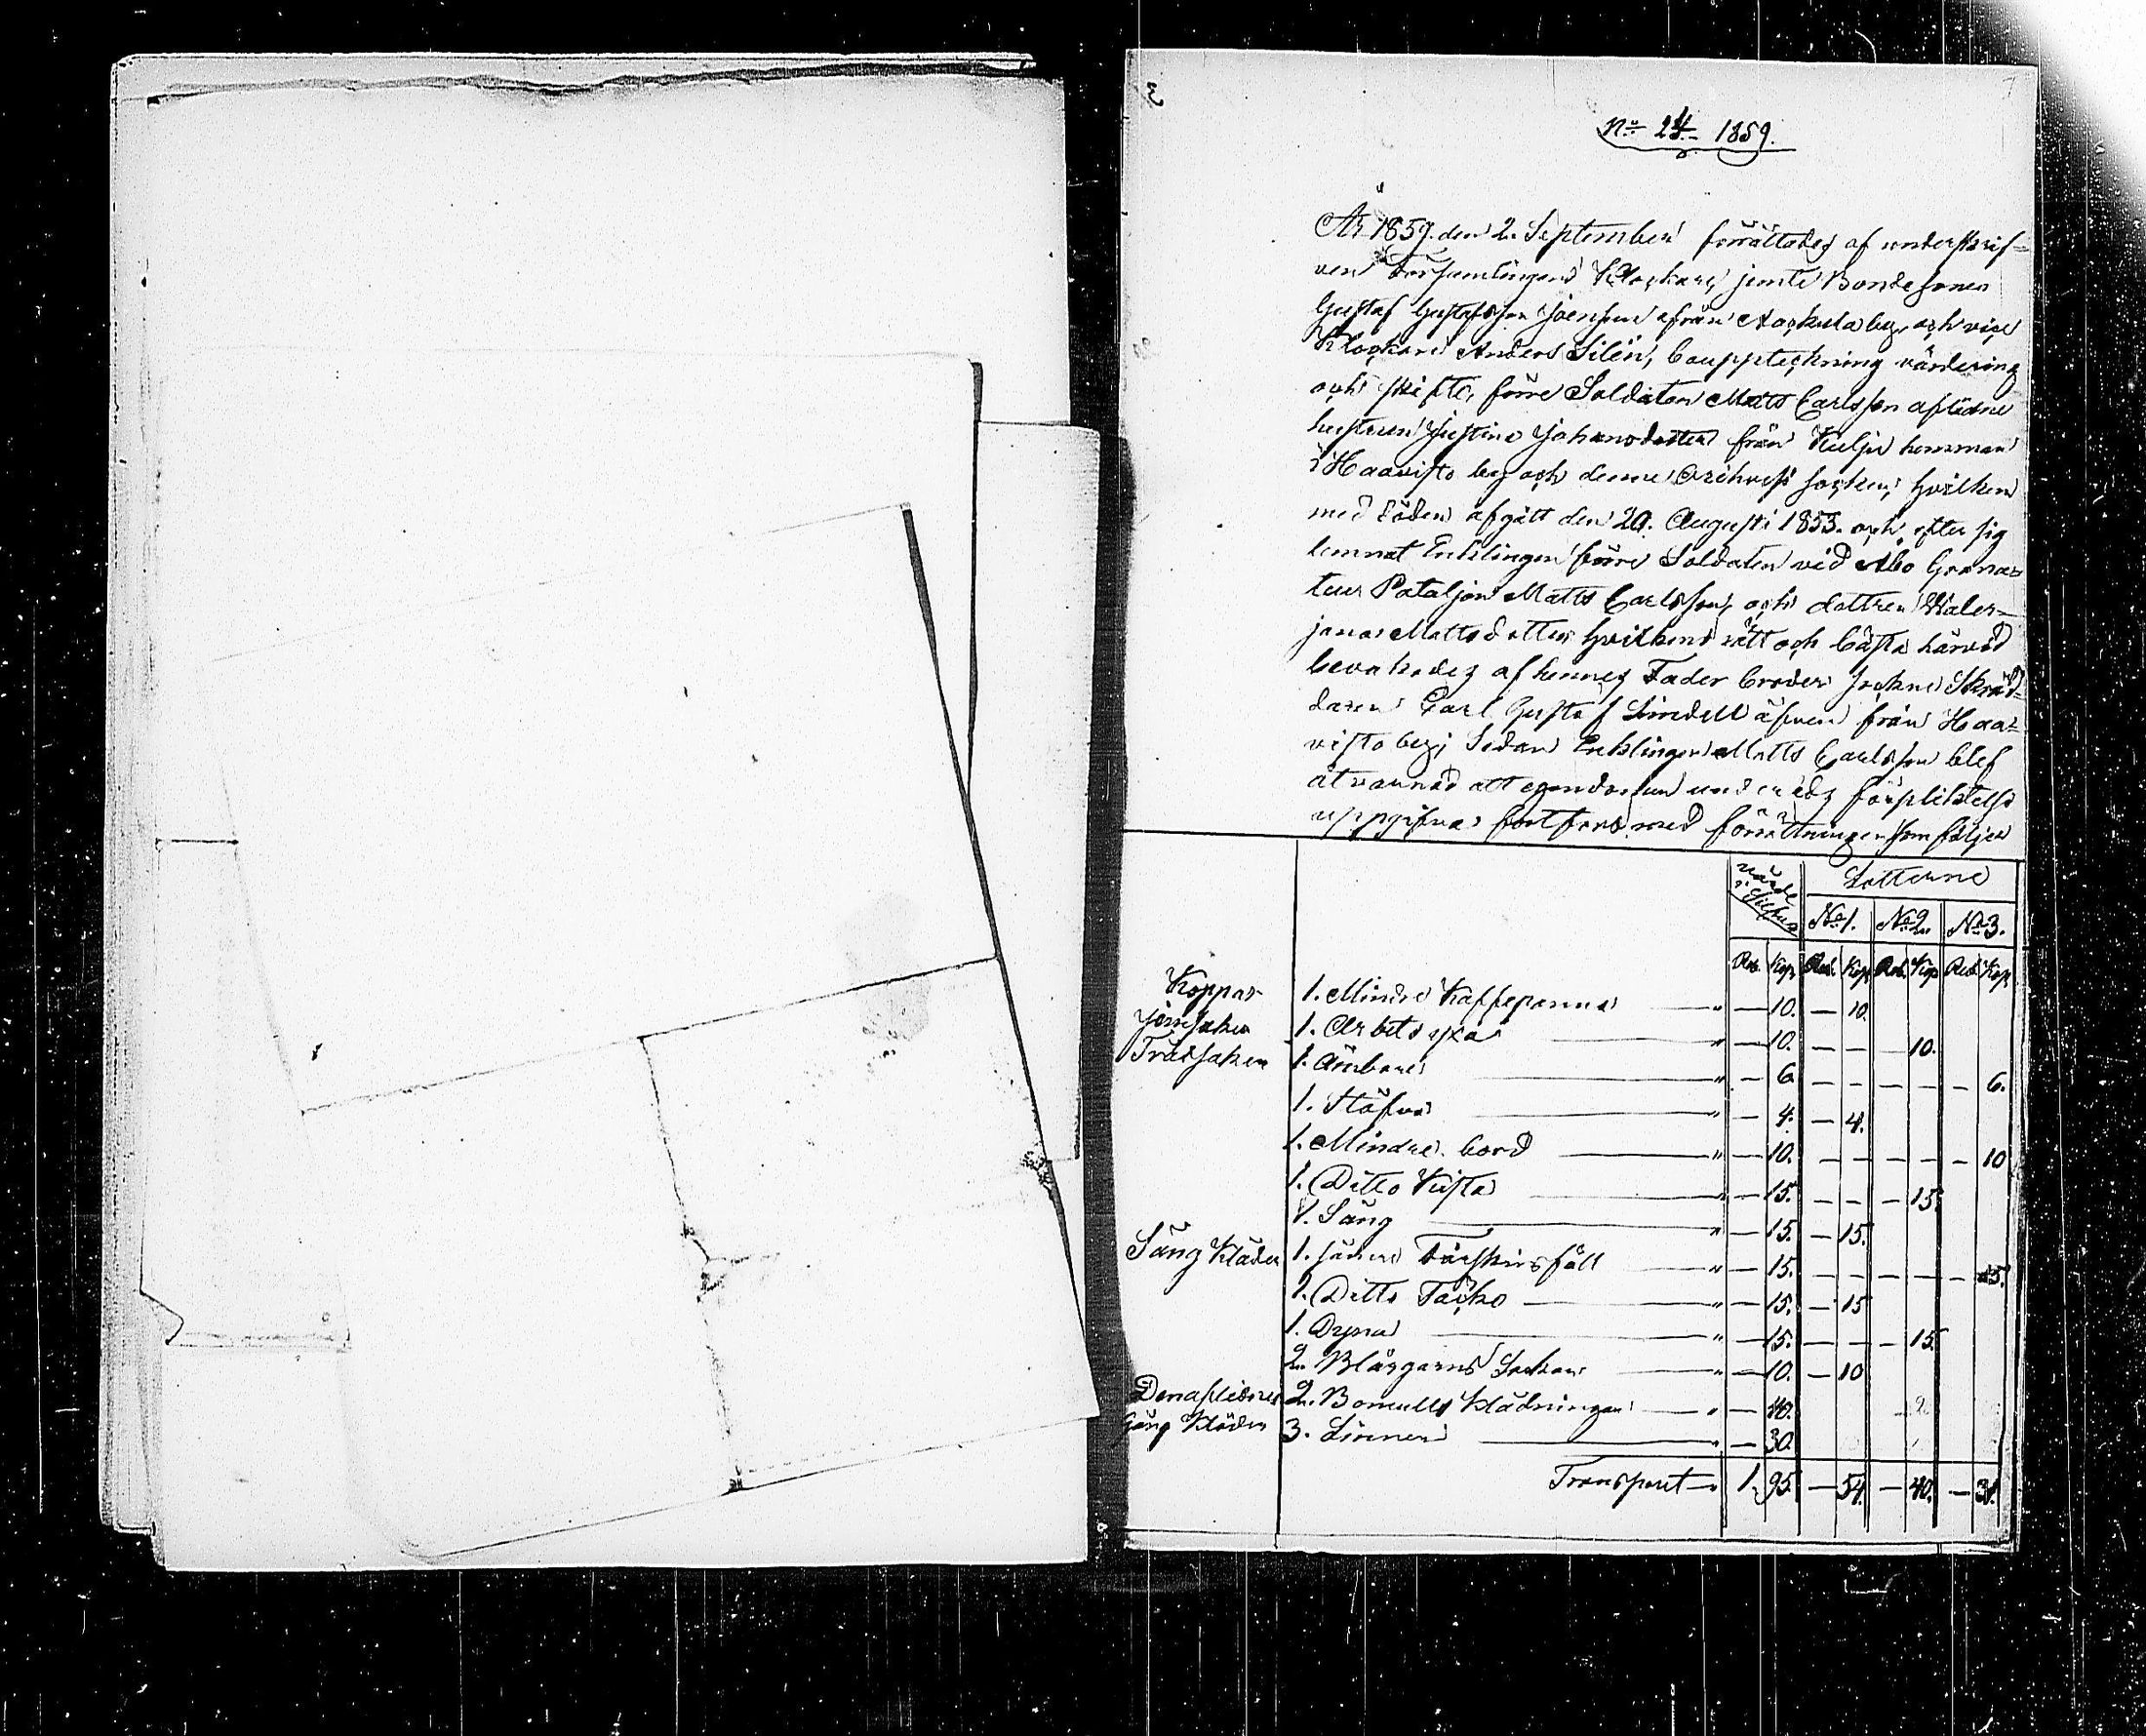 No 24 1859.
År 1859. den 2. September förrättades af underskrif=
ven Församlingens Klockare, jemte Bondesonen
Gustaf Gustafsson från by, och vice
Klockare Anders Silén, bouppteckning värdering
och skifte, förre Soldaten Matts Carlsson aflidne
hustrun Justina Johansdotter från hemman
i Haavisto by och denne Orihvesi socken, hvilken
med döden afgått den 29. Augusti 1853. och efter sig
lemnat Enklingen förre Soldaten vid Åbo Grena=
teur Bataljon Matts Carlsson, och dottren Waler=
jana Mattsdotter hvilkens rätt och bästa härvid
bevakades af hennes Fader broder socknes Skräd=
daren Carl Gustaf Lindell äfven från Haa=
visto by; Sedan Enklingen Matts Carlsson blef
åtvarnad att egendomen under eds förpliktelse
uppgifva fortfors med förrättningen som följer
värde i Silfver Lotterne
No 1. No 2. No 3.
Rub. Kop. Rub. Kop. Rub. Kop. Rub. Kop.
Koppar 1. Mindre Kaffepanna " — 10. — 10.
Jernsaker 1. Arbets yxa " — 10. — — — 10.
Trädsaker 1. Ämbare " — 6. — — — — — 6.
1. Stäfva " — 4. — 4.
1. Mindre bord " — 10. — — — — — 10
1. Ditto Kista " — 15. — — — 15.
1. Säng " — 15. — 15.
Säng Kläder 1. sämre Fårskinsfäll " — 15. — — — — — 15.
1. Ditto Täcke " — 15. — 15
1. Dyna " — 15. — — — 15.
2. Blårgarns Lakan — 10. — 10
Den aflidnes 2. Bomulls Klädningar " — 40. — 2
Gång Kläder 3. Linner " — 30.
Transport — " 1. 95. — 54. — 40. — 31.